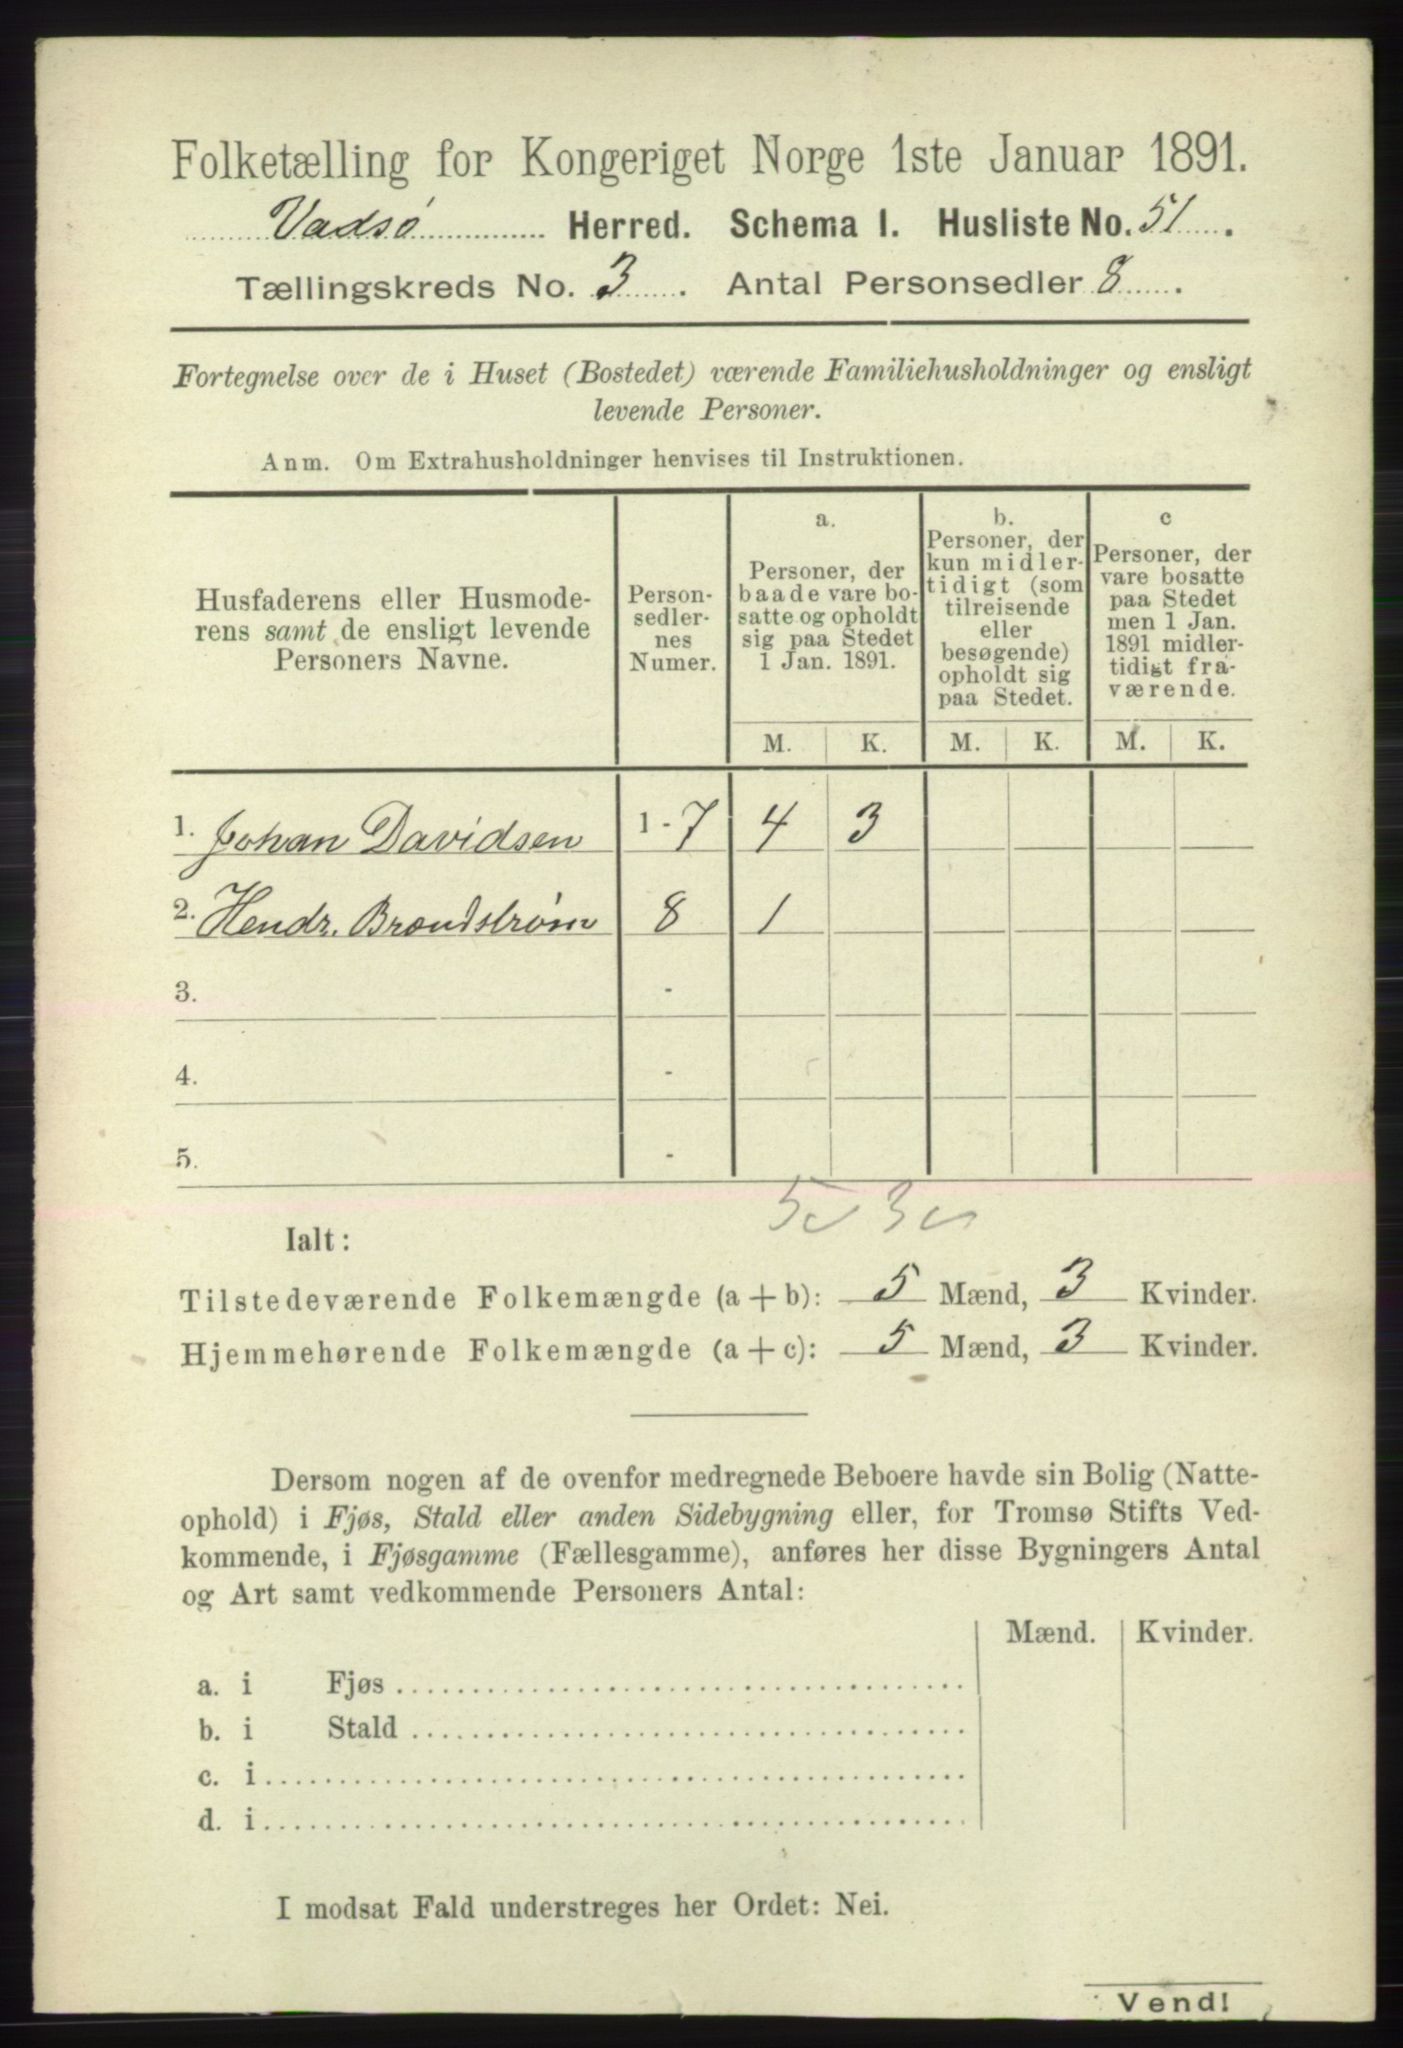 Folketælling for Kongeriget Norge 1ste Januar 1891.
Vadsø Herred. Schema I. Husliste No. 51.
Tællingskreds No. 3. Antal Personsedler 8.
Fortegnelse over de i Huset (Bostedet) værende Familiehusholdninger og ensligt
levende Personer.
Anm. Om Extrahusholdninger henvises til Instruktionen.
Husfaderens eller Husmode-
rens samt de ensligt levende
Personers Navne.
Person-
sedler-
nes
Numer.
a.
Personer, der
baade vare bo-
satte og opholdt
sig paa Stedet
1 Jan. 1891.
b.
Personer, der
kun midler-
tidigt (som
tilreisende
eller
besøgende)
opholdt sig
paa Stedet.
c
Personer, der
vare bosatte
paa Stedet
men 1 Jan.
1891 midler-
tidigt fra-
værende.
M. K. M. K. M. K.
1. Johan Davidsen 1-7 4 3
2. Hendr. Brandstrøm 8 1
3. -
4. -
5. -
5 3
Ialt:
Tilstedeværende Folkemængde (a + b): 5 Mænd, 3 Kvinder.
Hjemmehørende Folkemængde (a + c): 5 Mænd, 3 Kvinder.
Dersom nogen af de ovenfor medregnede Beboere havde sin Bolig (Natte-
ophold) i Fjøs, Stald eller anden Sidebygning eller, for Tromsø Stifts Ved-
kommende, i Fjøsgamme (Fællesgamme), anføres her disse Bygningers Antal
og Art samt vedkommende Personers Antal:
Mænd. Kvinder.
a. i Fjøs
b. i Stald
c. i
d. i
I modsat Fald understreges her Ordet: Nei.
Vend!